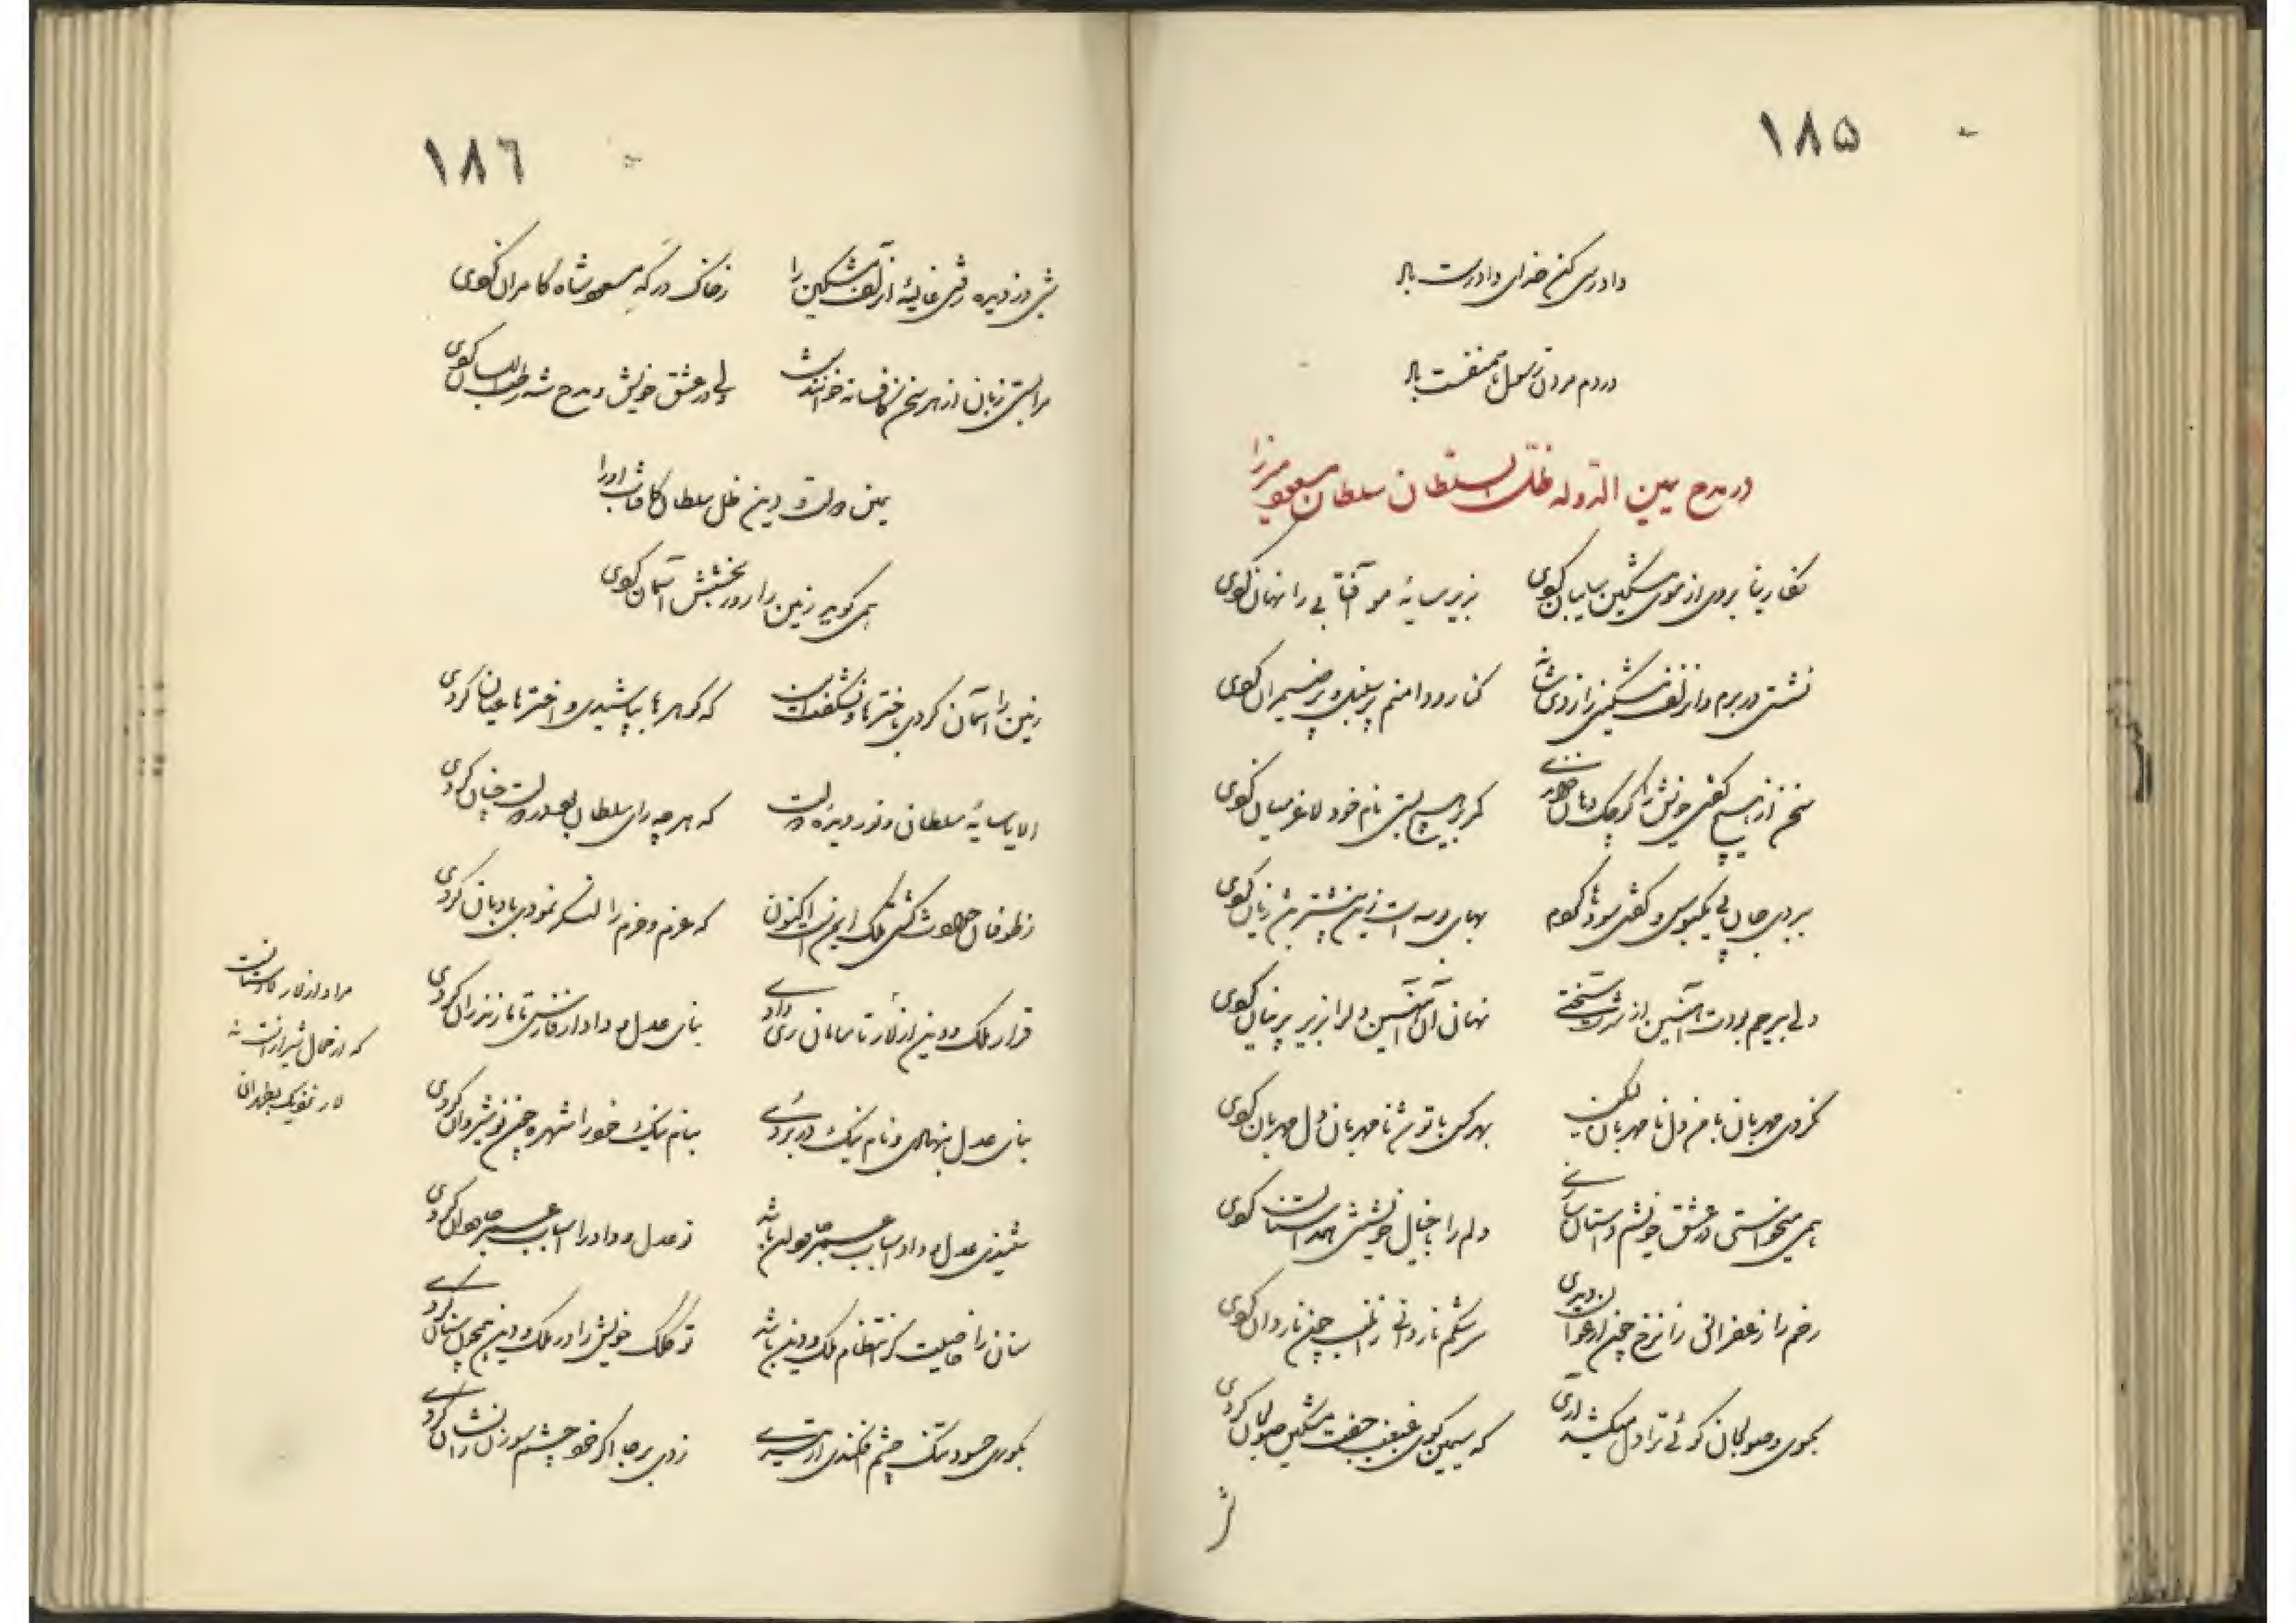 ۱۸۵
دادرسی کن خدای دادرست باد
در دم مردن رسول همنفست باد
در مدح یمین الدوله ظل السلطان سلطان مسعود میرزا
نگارینا بروی از موی مشکین سایبان کردی
بزیر سایهٔ مو آفتابی را نهان کردی
نشستی در برم و از زلف مشکین راز دی شانه
کنار و دامنم پر سنبل و پر ضیمران کردی
سخن از هیچ گفتی خویش را کوچک دهان خواندی
کمر بر هیچ بستی نام خود لاغر میان کردی
ببردی جان پی یک بوس و گفتی سود ها کردم
بهای بوسه است زین بیشتر بد زیان کردی
دلی بیرحم بودت آهنین از سختی
نهان آن آهنین دل را بزیر پرنیان کردی
نکردی مهربان با من دل نامهربان لیکن
بهر کس با تو شد نامهربان دل مهربان کردی
همی میخواستی در عشق خویشم داستان سازی
دلم را با خیال خویشتن همداستان کردی
رخم را زعفرانی زان رخ چون ارغوان دیدی
سرشکم ناردانی زان لب چون ناردان کردی
بگوی و صولجان گوئی ترا دل میکشد آری
که سیمین گوی غبغب جفت مشکین صولجان کردی
۱۸۶
شبی دزدیده رفتی غالیه از زلف مشکین را
ز خاک درگه مسعود شاه کامران کردی
مرا بستی زبان از هر سخن کافسانه خوانندش
ولی در عشق خویش و مدح شه رطب اللسان کردی
یمین دولت و دین ظل سلطان کافتاب او را
همی گوید زمین را روز بخشش آسمان کردی
زمین را آسمان کردی باخترها و نشگفت این
که گوهرها بپاشیدی و اخترها عیان کردی
الا یا سایهٔ سلطان و نور دیدهٔ دولت
که هر چه رای سلطان بود در دولت چنان کردی
ز طوفان حوادث کشتی ملک ایمن است اکنون
که عزم و حزم را لنگر نمودی بادبان کردی
قرار ملک و دین از لار تا سامان ری دادی
بنای عدل و داد از فارس تا مازندران کردی
مراد از لار لارستانست
که در خاک شیراز است نه
لار نزدیک بطهران
بنای عدل بنهادی و نام نیک در بردی
بنام نیک خود را شهره چون نوشیروان کردی
شنیدی عدل و داد اسباب عمر جاودان باشد
ز عدل و داد را اسباب عمر جاودان کردی
سنان را خاصیت گر انتظام ملک و دین باشد
تو کلک خویش را در ملک و دین همچون سنان کردی
بکوری حسود تنگ چشم افکندی ار تیری
زدی بر جا اگر خود چشم سوزن را نشان کردی